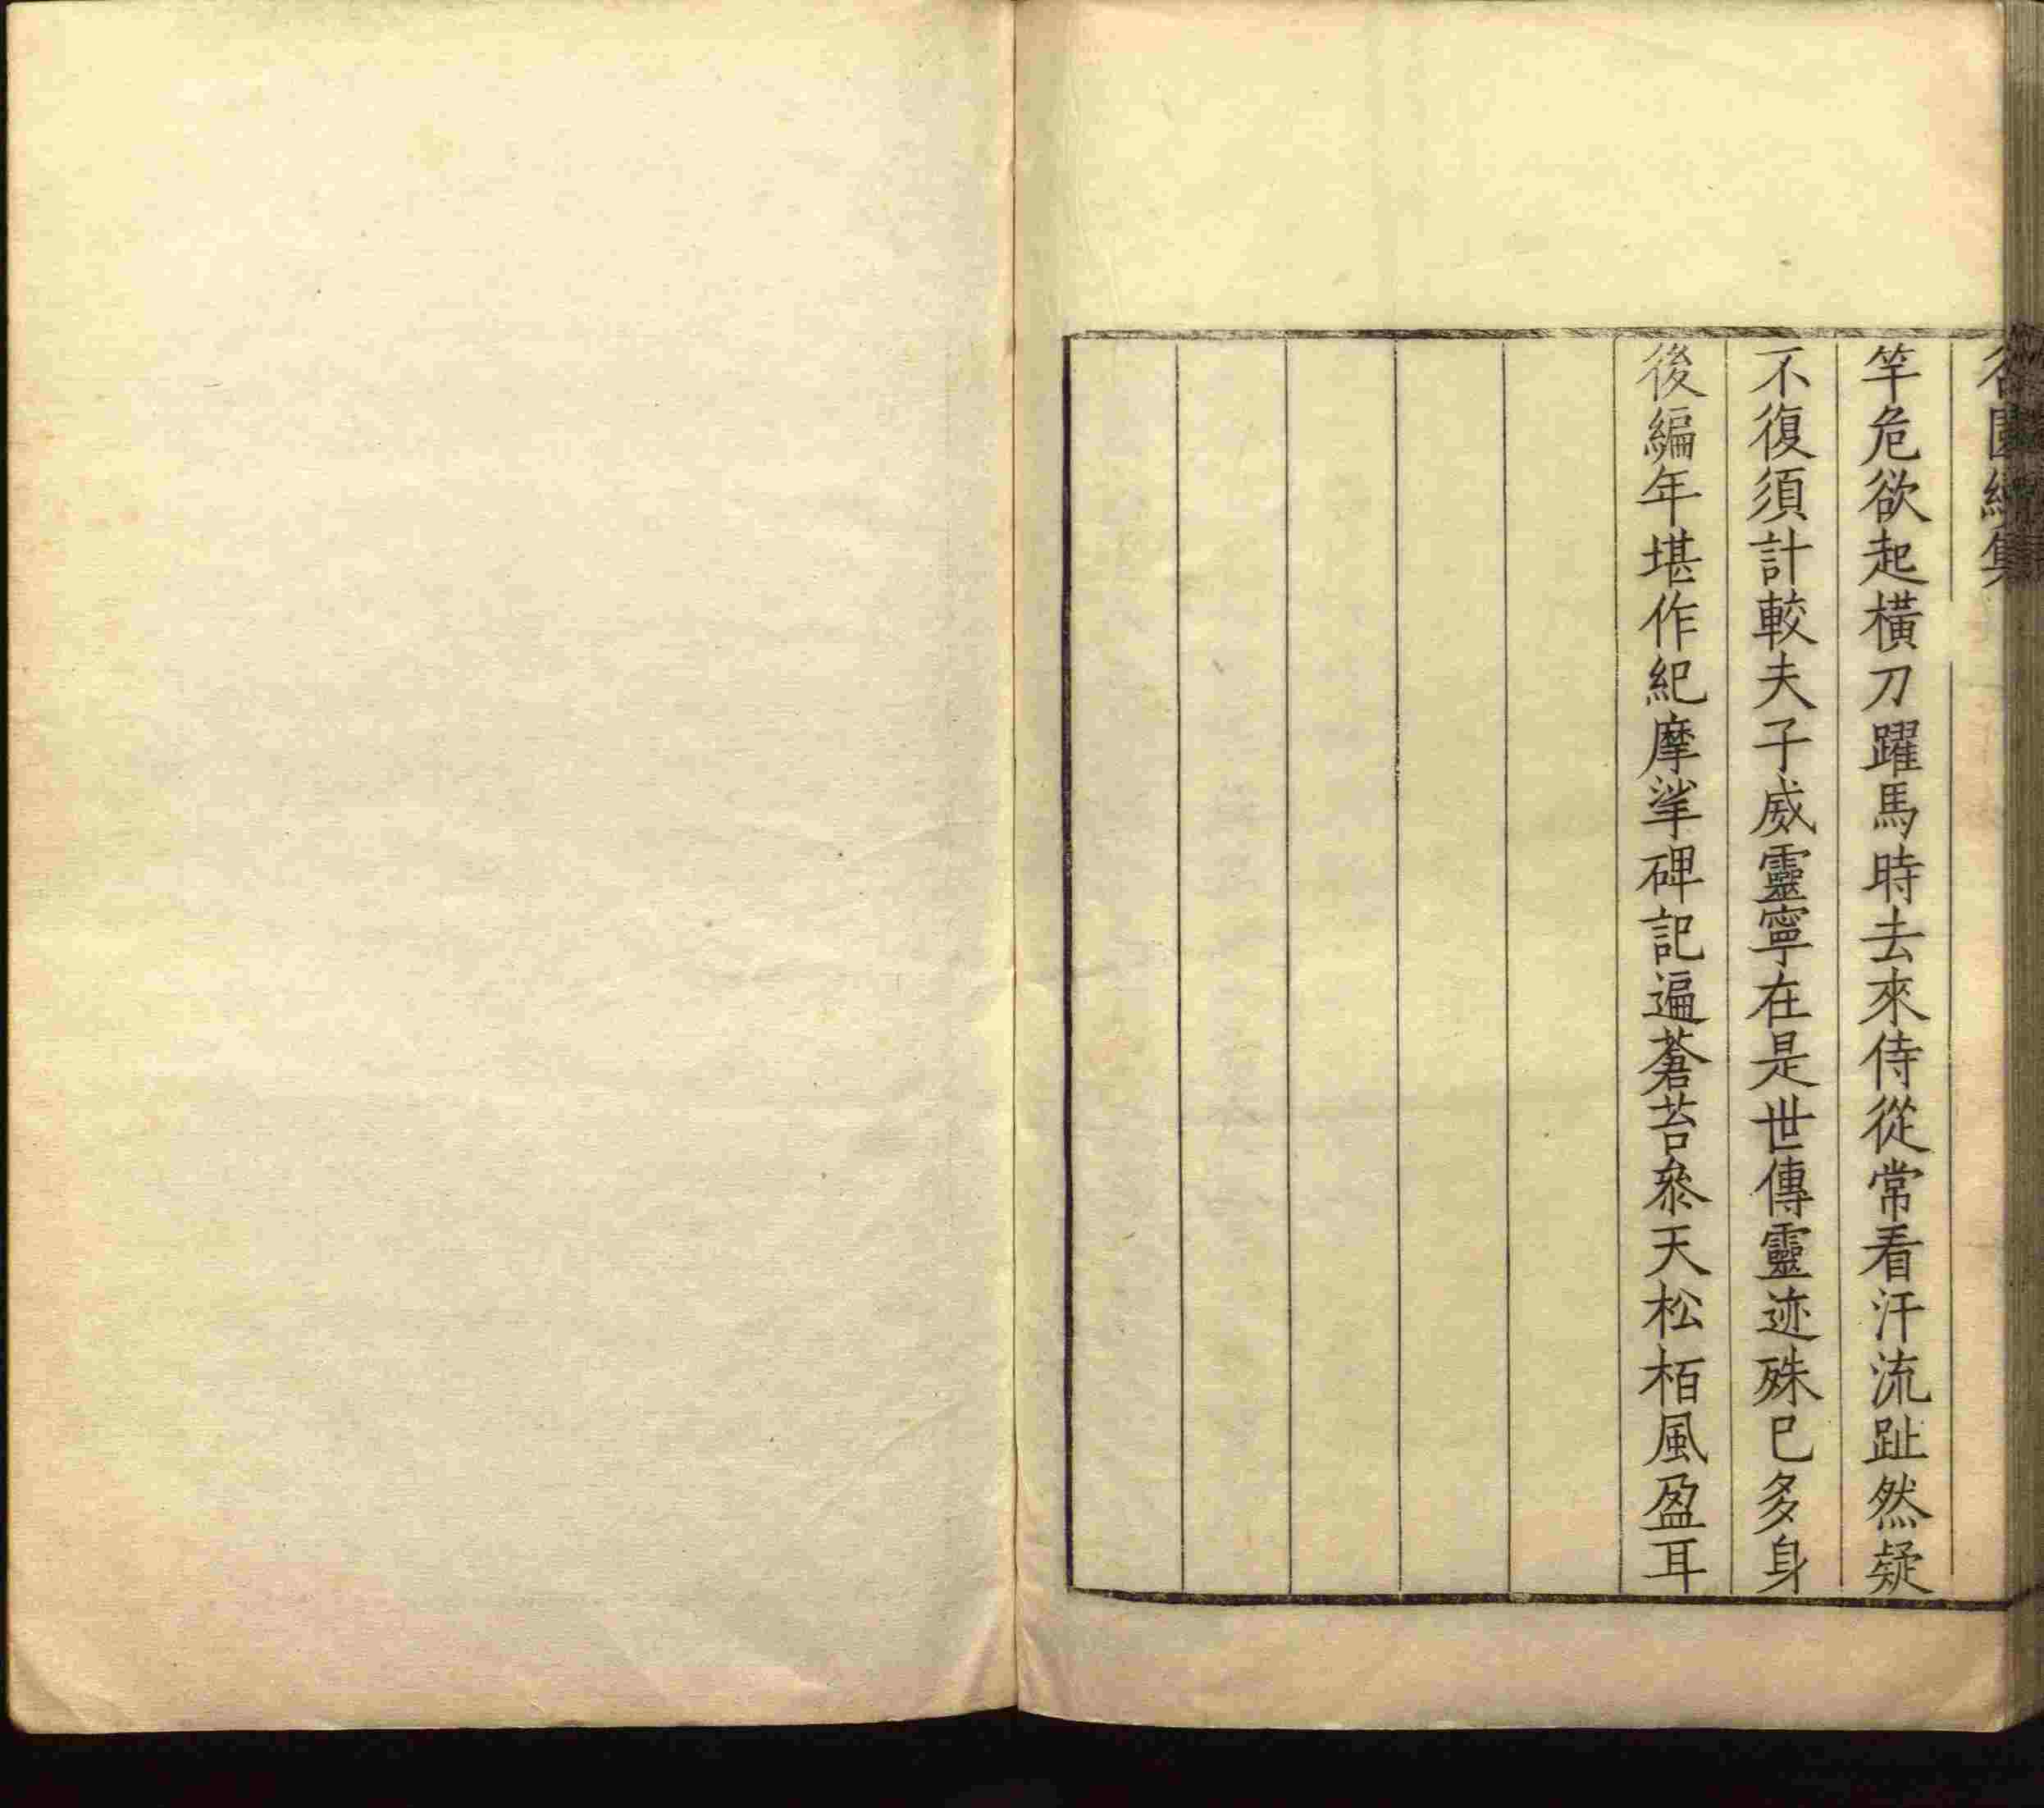 竿危欲起橫刀躍馬時去來侍從常看汗流趾然疑
不復須計較夫子威靈寧在是世傳靈迹殊已多身
後編年堪作紀摩挲碑記遍蒼苔叅天松栢風盈耳